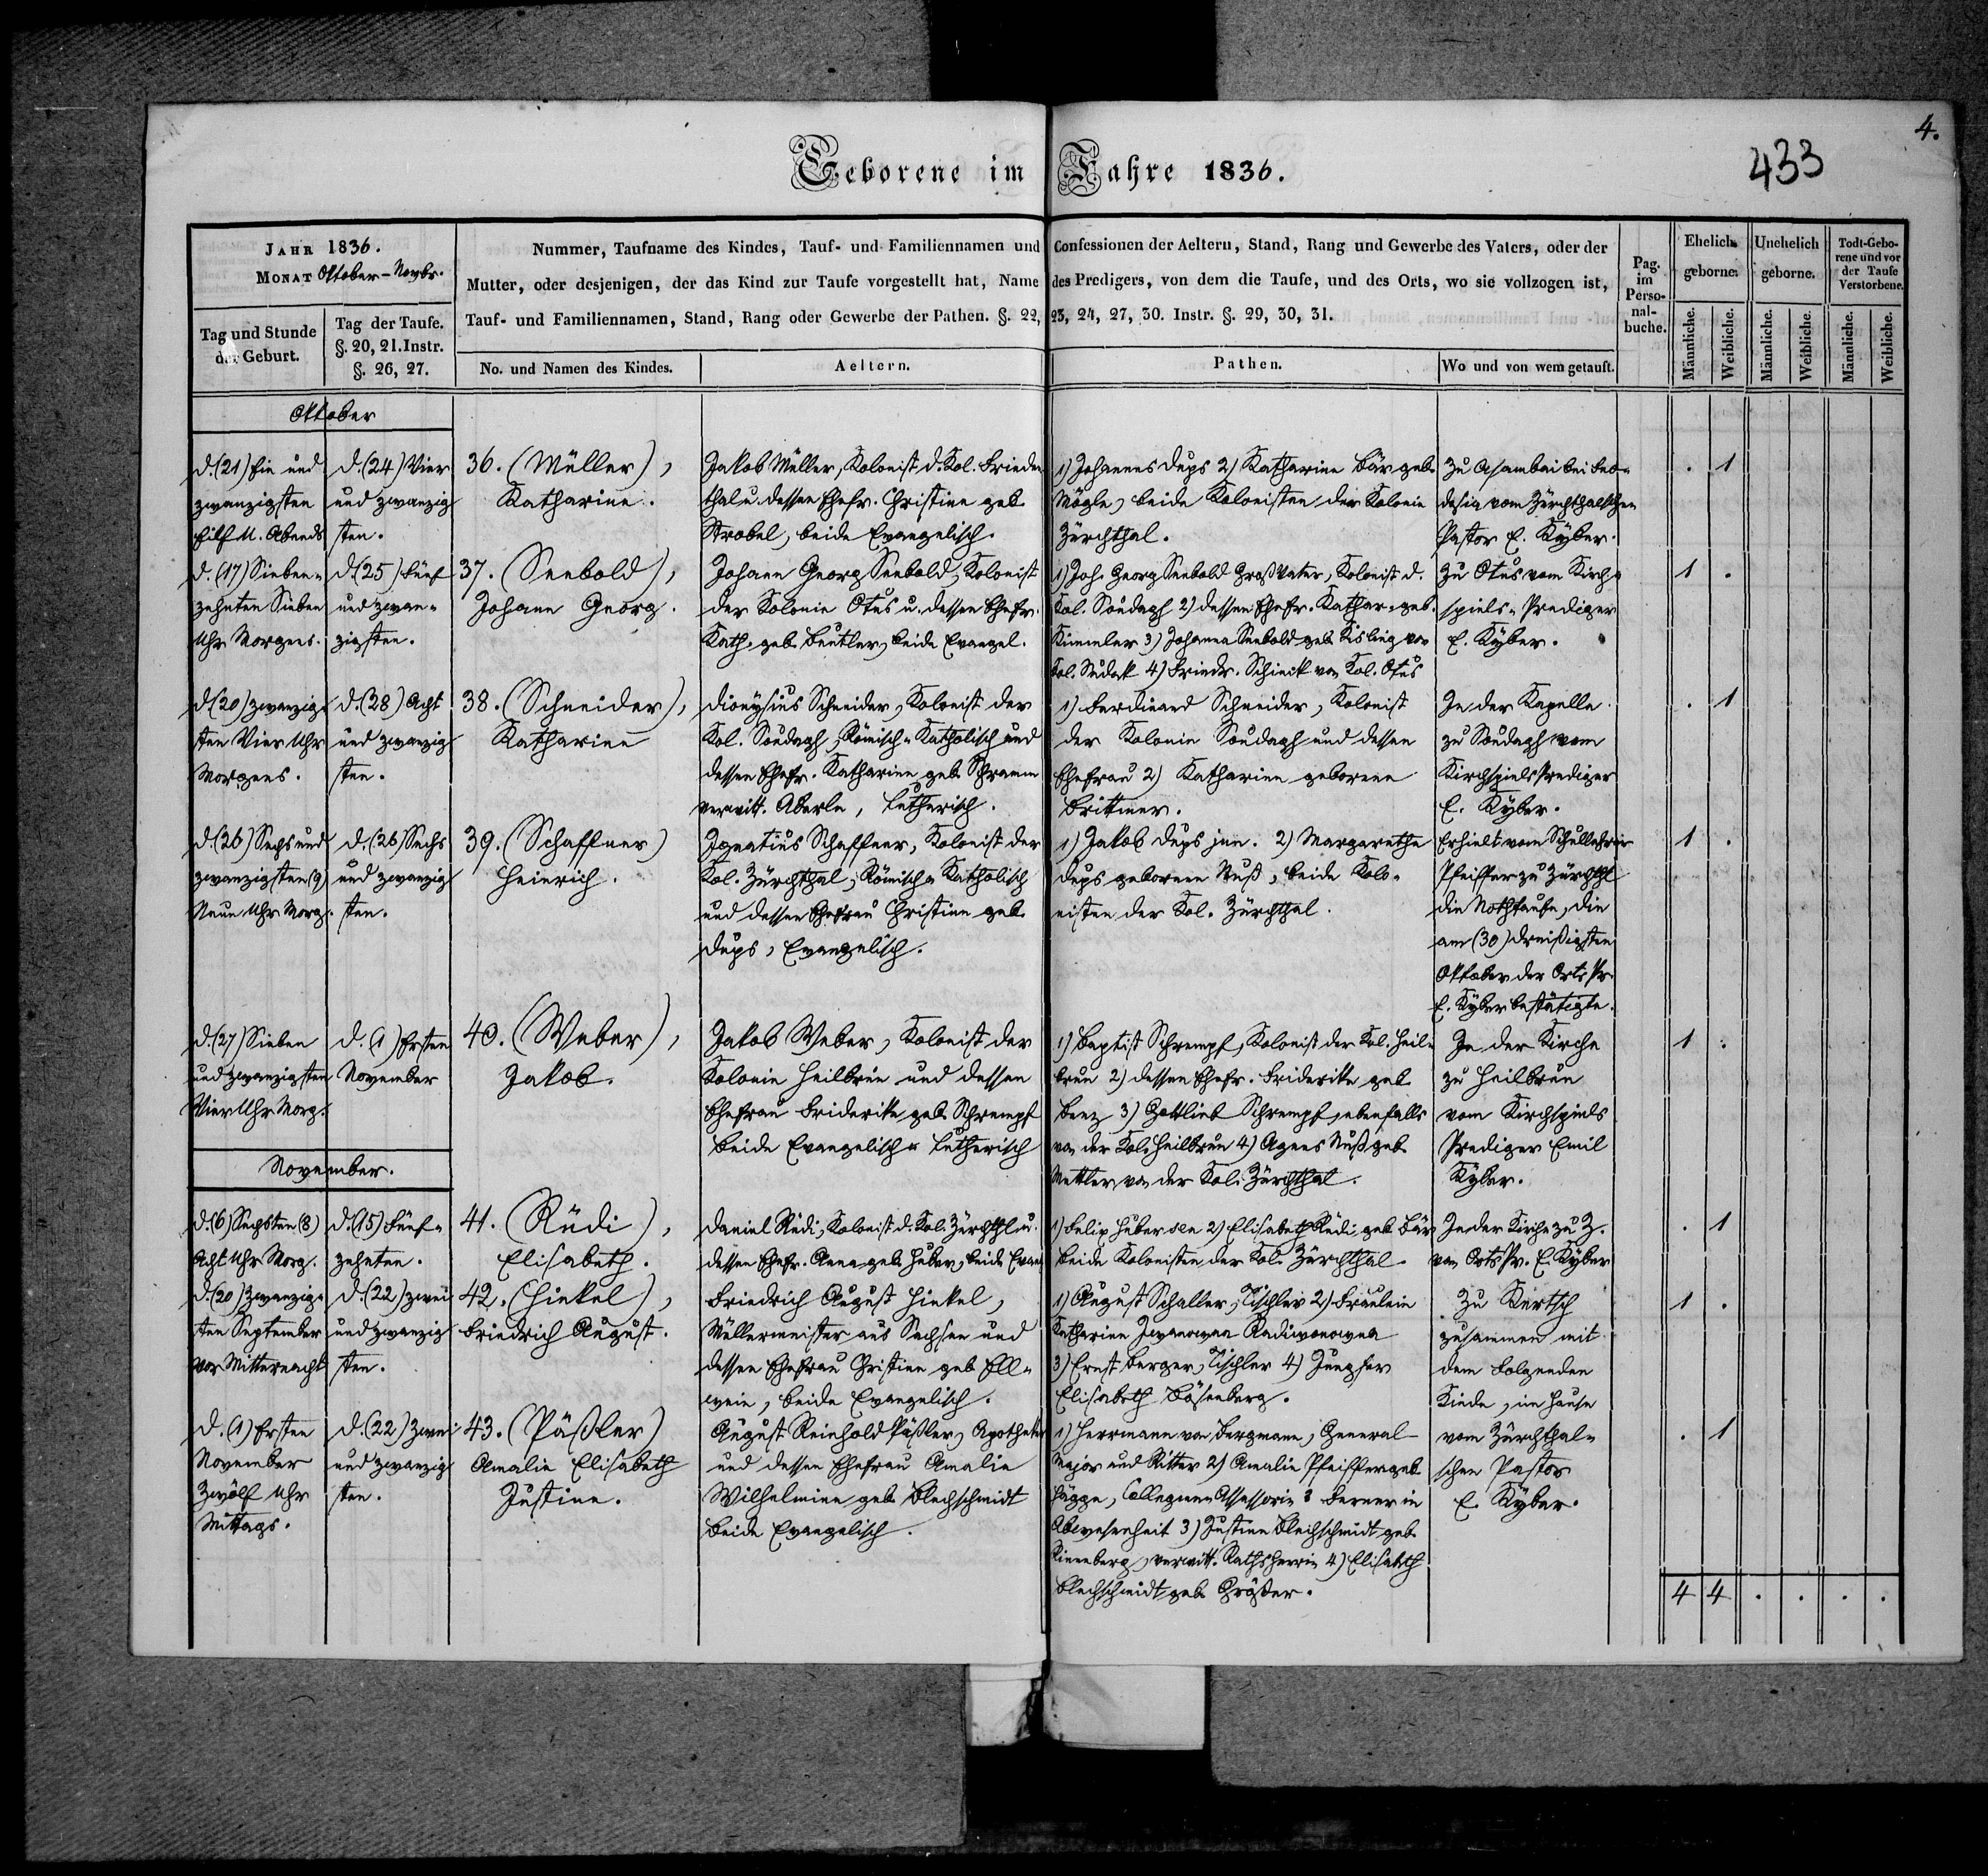 4.
433
Geborene im Jahre 1836.
JAHR 1836.
MONAT Oktober-Novbr.
Tag und Stunde der Geburt.
Tag der Taufe. §. 20, 21. Instr. §. 26, 27.
Nummer, Taufname des Kindes, Tauf- und Familiennamen und Confessionen der Aeltern, Stand, Rang und Gewerbe des Vaters, oder der
Mutter, oder desjenigen, der das Kind zur Taufe vorgestellt hat, Name des Predigers, von dem die Taufe, und des Orts, wo sie vollzogen ist,
Tauf- und Familiennamen, Stand, Rang oder Gewerbe der Pathen. §. 22, 23, 24, 27, 30. Instr. §. 29, 30, 31.
No. und Namen des Kindes.
Aeltern.
Pathen.
Wo und von wem getauft.
Pag. im Perso-nal-buche.
Ehelich geborne.
Unehelich geborne.
Todt-Gebo-rene und vor der Taufe Verstorbene.
Männliche. Weibliche. Männliche. Weibliche. Männliche. Weibliche.
Oktober
d. (21) Ein und
zwanzigsten
Eilf U. Abends
d. (24) Vier
und zwanzig
sten.
36. (Müller),
Katharine.
Jakob Müller, Kolonist d. Kol. Frieden
thal u. dessen Ehefr. Christine geb.
Strobel, beide Evangelisch.
1) Johannes Dups 2) Katharine Bär geb.
Mögle, beide Kolonisten der Kolonie
Zürchthal.
zu Asambai bei Feo-
dosia vom Zürchthalschen
Pastor E. Kyber.
. 1
d. (17) Sieben-
zehnten Sieben
Uhr Morgens.
d. (25) Fünf
und zwan-
zigsten.
37. (Seebold),
Johann Georg.
Johann Georg Seebold, Kolonist
der Kolonie Otus u. dessen Ehefr.
Kath. geb. Beutler, beide Evangel.
1) Joh. Georg Seebold Großvater, Kolonist d.
Kol. Soudagh 2) dessen Ehefr. Kathar. geb.
Kimmler 3) Johanna Seebold geb. Kisling von
Kol. Sudak 4) Friedr. Schieck von Kol. Otus
zu Otus vom Kirch-
spiels-Prediger
E. Kyber.
1 .
d. (20) zwanzig-
sten Vier Uhr
Morgens.
d. (28) Acht
und zwanzig
sten.
38. (Schneider),
Katharine
Dionysius Schneider, Kolonist der
Kol. Soudagh, Römisch-Katholisch und
dessen Ehefr. Katharine geb. Schramm
verwitt. Aberle, Lutherisch.
1) Ferdinand Schneider, Kolonist
der Kolonie Soudagh und dessen
Ehefrau 2) Katharine geborene
Brittner.
In der Kapelle
zu Soudagh vom
Kirchspiels Prediger
E. Kyber.
. 1
d. (26) Sechs und
zwanzigsten (9)
Neun Uhr Morg.
d. (26) Sechs
und zwanzig
sten.
39. (Schaffner)
Heinrich.
Ignatius Schaffner, Kolonist der
Kol. Zürchthal, Römisch-Katholisch
und dessen Ehefrau Christine geb.
Dups, Evangelisch.
1) Jakob Dups jun. 2) Margarethe
Dups geborene Nuß, beide Kolo-
nisten der Kol. Zürchthal.
Erhielt vom Schullehrer
Pfeiffer zu Zürchthl
die Nothtaufe, die
am (30) dreißigsten
Oktober der Orts Pr.
E. Kyber bestätigte.
1 .
d. (27) Sieben
und zwanzigsten
Vier Uhr Morg.
d. (1) Ersten
November
40. (Weber),
Jakob.
Jakob Weber, Kolonist der
Kolonie Heilbrun und dessen
Ehefrau Friderike geb. Schrempf
beide Evangelisch-Lutherisch
1) Baptist Schrempf, Kolonist der Kol. Heil-
brun 2) dessen Ehefr. Friderike geb.
Benz 3) Gottlieb Schrempf, ebenfalls
von der Kol. Heilbrun 4) Agnes Nuß geb.
Mettler von der Kol. Zürchthal.
In der Kirche
zu Heilbrun
vom Kirchspiels
Prediger Emil
Kyber.
1 .
November.
d. (6) Sechsten (8)
Acht Uhr Morg.
d. (15) Fünf-
zehnten.
41. (Rüdi),
Elisabeth.
Daniel Rüdi, Kolonist d. Kol. Zürchthl u.
dessen Ehefr. Anna geb. Huber, beide Evan
1) Felix Huber sen 2) Elisabeth Rüdi geb. Bär
beide Kolonisten der Kol. Zürchthal.
In der Kirche zu Z.
von Orts Pr. E. Kyber
. 1
d. (20) Zwanzig-
sten September
vor Mitternacht
d. (22) zwei
und zwanzig
sten.
42. (Hinkel),
Friedrich August.
Friedrich August Hinkel,
Müllermeister aus Sachsen und
dessen Ehefrau Christine geb. Ell-
wein, beide Evangelisch.
1) August Schaller, Tischler 2) Fräulein
Katharine Iwanowna Radiwonowna
3) Ernst Berger, Tischler 4) Jungfer
Elisabeth Bösenberg.
Zu Kertsch
zusammen mit
dem folgenden
Kinde, im Hause
1 .
d. (1) Ersten
November
Zwölf Uhr
Mittags.
d. (22) Zwei
und zwanzig
sten.
43. (Päßler)
Amalie Elisabeth
Justine.
August Reinhold Päßler, Apotheker
und dessen Ehefrau Amalie
Wilhelmine geb. Blechschmidt
beide Evangelisch.
1) Herrmann von Bergmann, General
Major und Ritter 2) Amalie Pfeiffer geb.
Hägge, Collegien Assessorin Ferner in
Abwesenheit 3) Justine Blechschmidt geb.
Rinneberg, verwitt. Rathsherrin 4) Elisabeth
Blechschmidt geb. Größer.
vom Zürchthal-
schen Pastor
E. Kyber.
. 1
4 4 . . . .